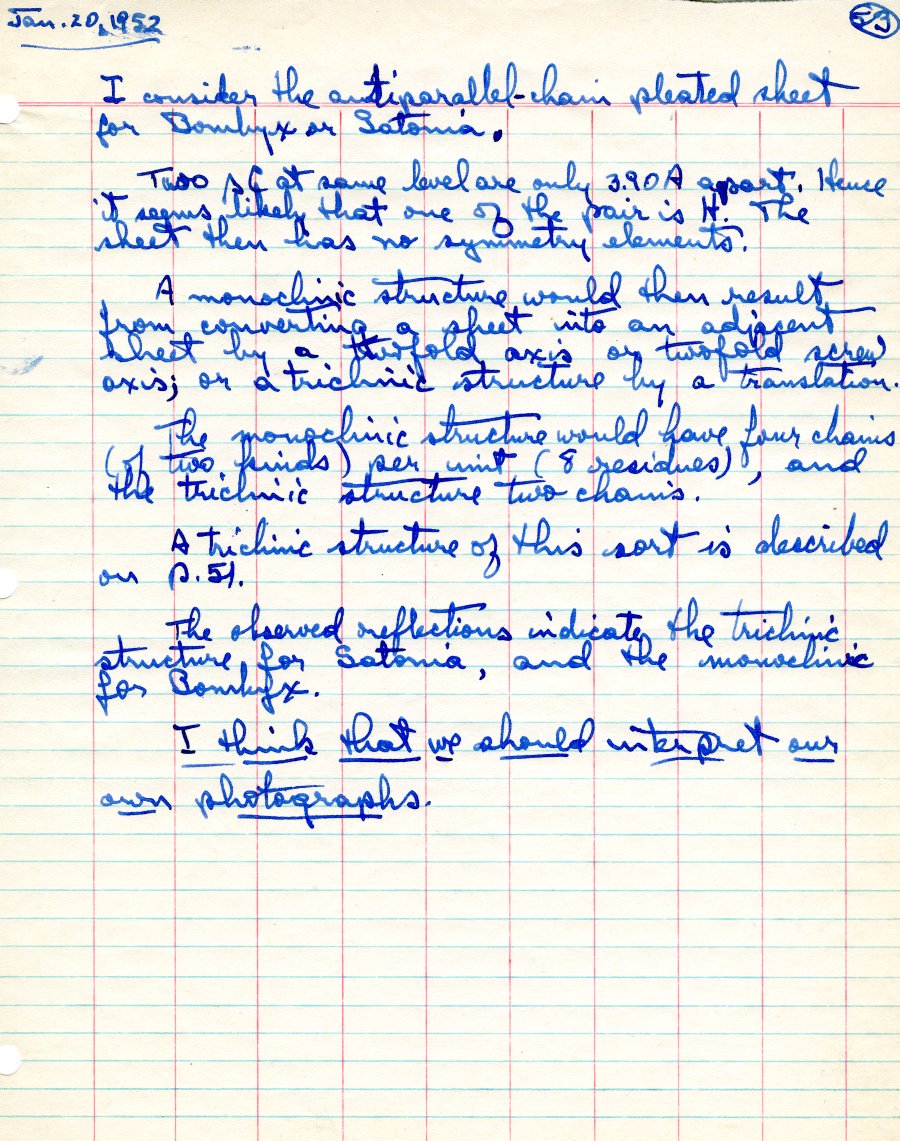 Jan. 20, 1952
53
I consider the antiparallel-chain pleated sheet
for Bombyx or Satonia.
Two βC at same level are only 3.90A apart. Hence
it seems likely that one of the pair is H. The
sheet then has no symmetry elements.
A monoclinic structure would then result
from converting a sheet into an adjacent
sheet by a twofold axis or twofold screw
axis; or a triclinic structure by a translation.
The monoclinic structure would have four chains
(of two kinds) per unit (8 residues), and
the triclinic structure two chains.
A triclinic structure of this sort is described
on p. 51.
The observed reflections indicate the triclinic
structure for Satonia, and the monoclinic
for Bombyx.
I think that we should interpret our
own photographs.